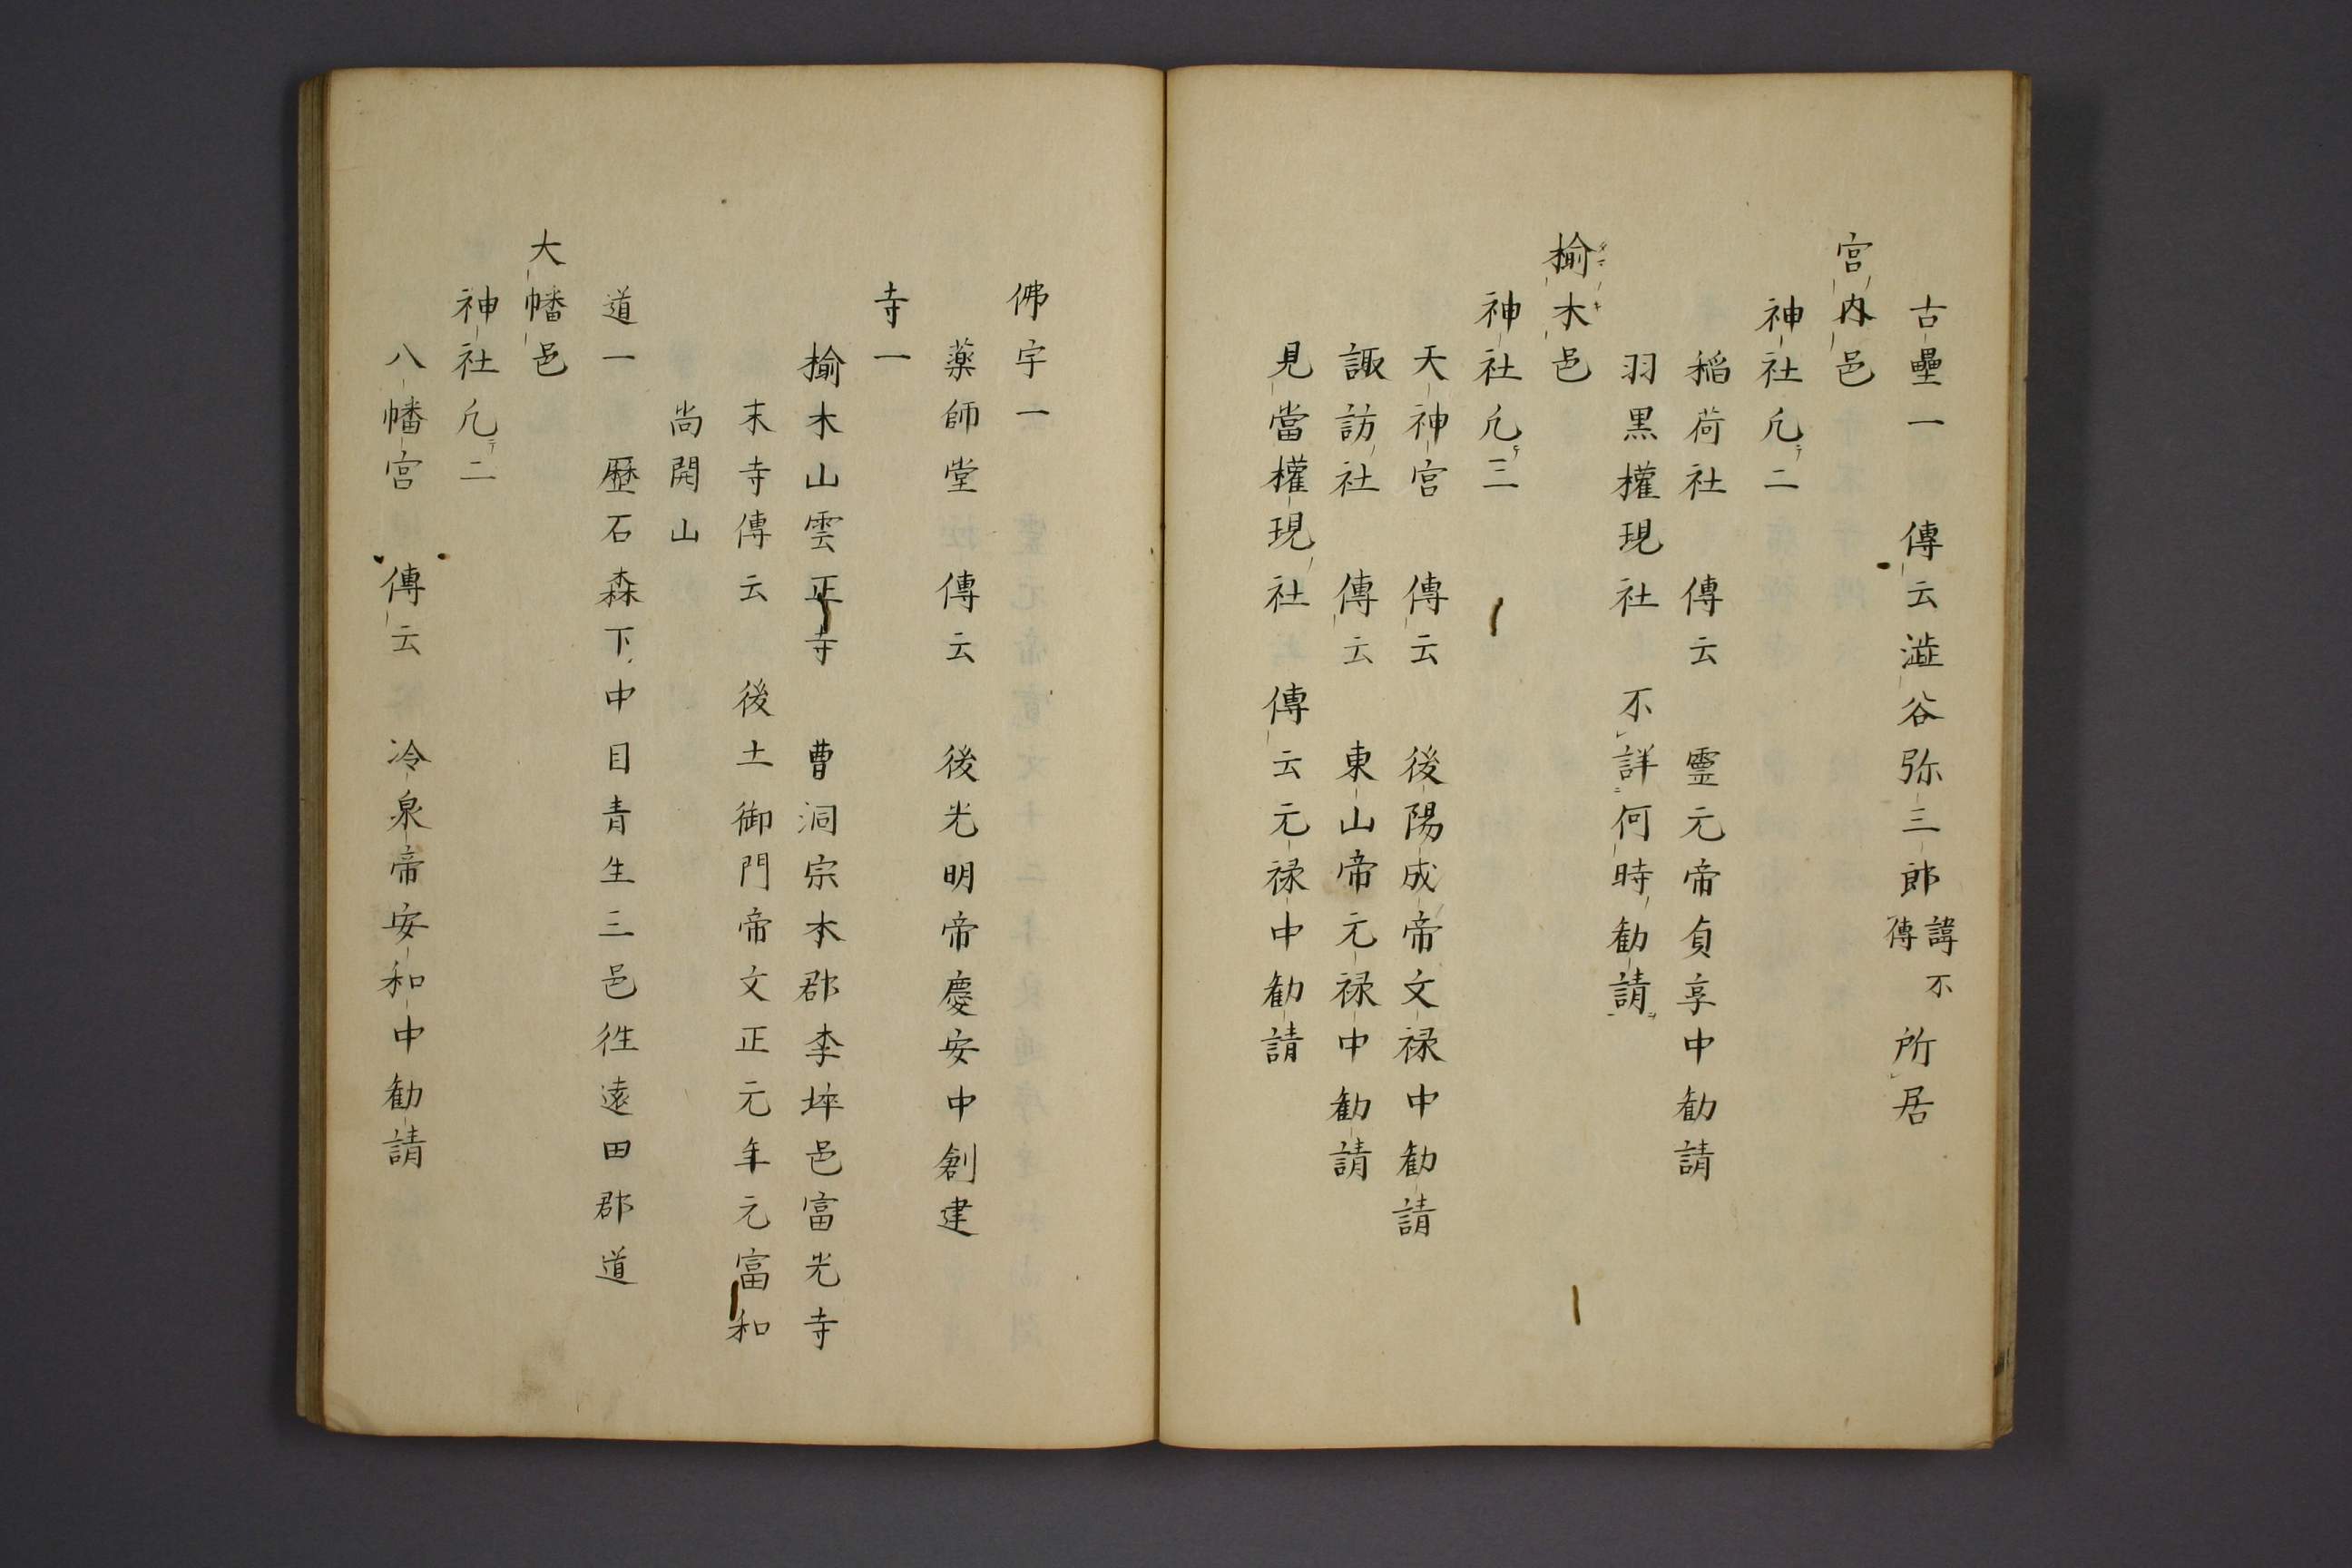 古壘一 傳云澁谷弥三郎諱不傳所居
宮内邑
神社凢二
稲荷社 傳云 靈元帝貞享中勧請
羽黒權現社 不詳何時勧請
榆木邑
神社凢三
天神宮 傳云 後陽成帝文禄中勧請
諏訪社 傳云 東山帝元禄中勧請
見當權現社 傳云元禄中勧請
佛宇一
藥師堂 傳云 後光明帝慶安中創建
寺一
榆木山雲正寺 曹洞宗本郡李埣邑富光寺
末寺傳云 後土御門帝文正元年元富和
尚開山
道一 歷石森下中目青生三邑徃遠田郡道
大幡邑
神社凢二
八幡宮 傳云 冷泉帝安和中勧請